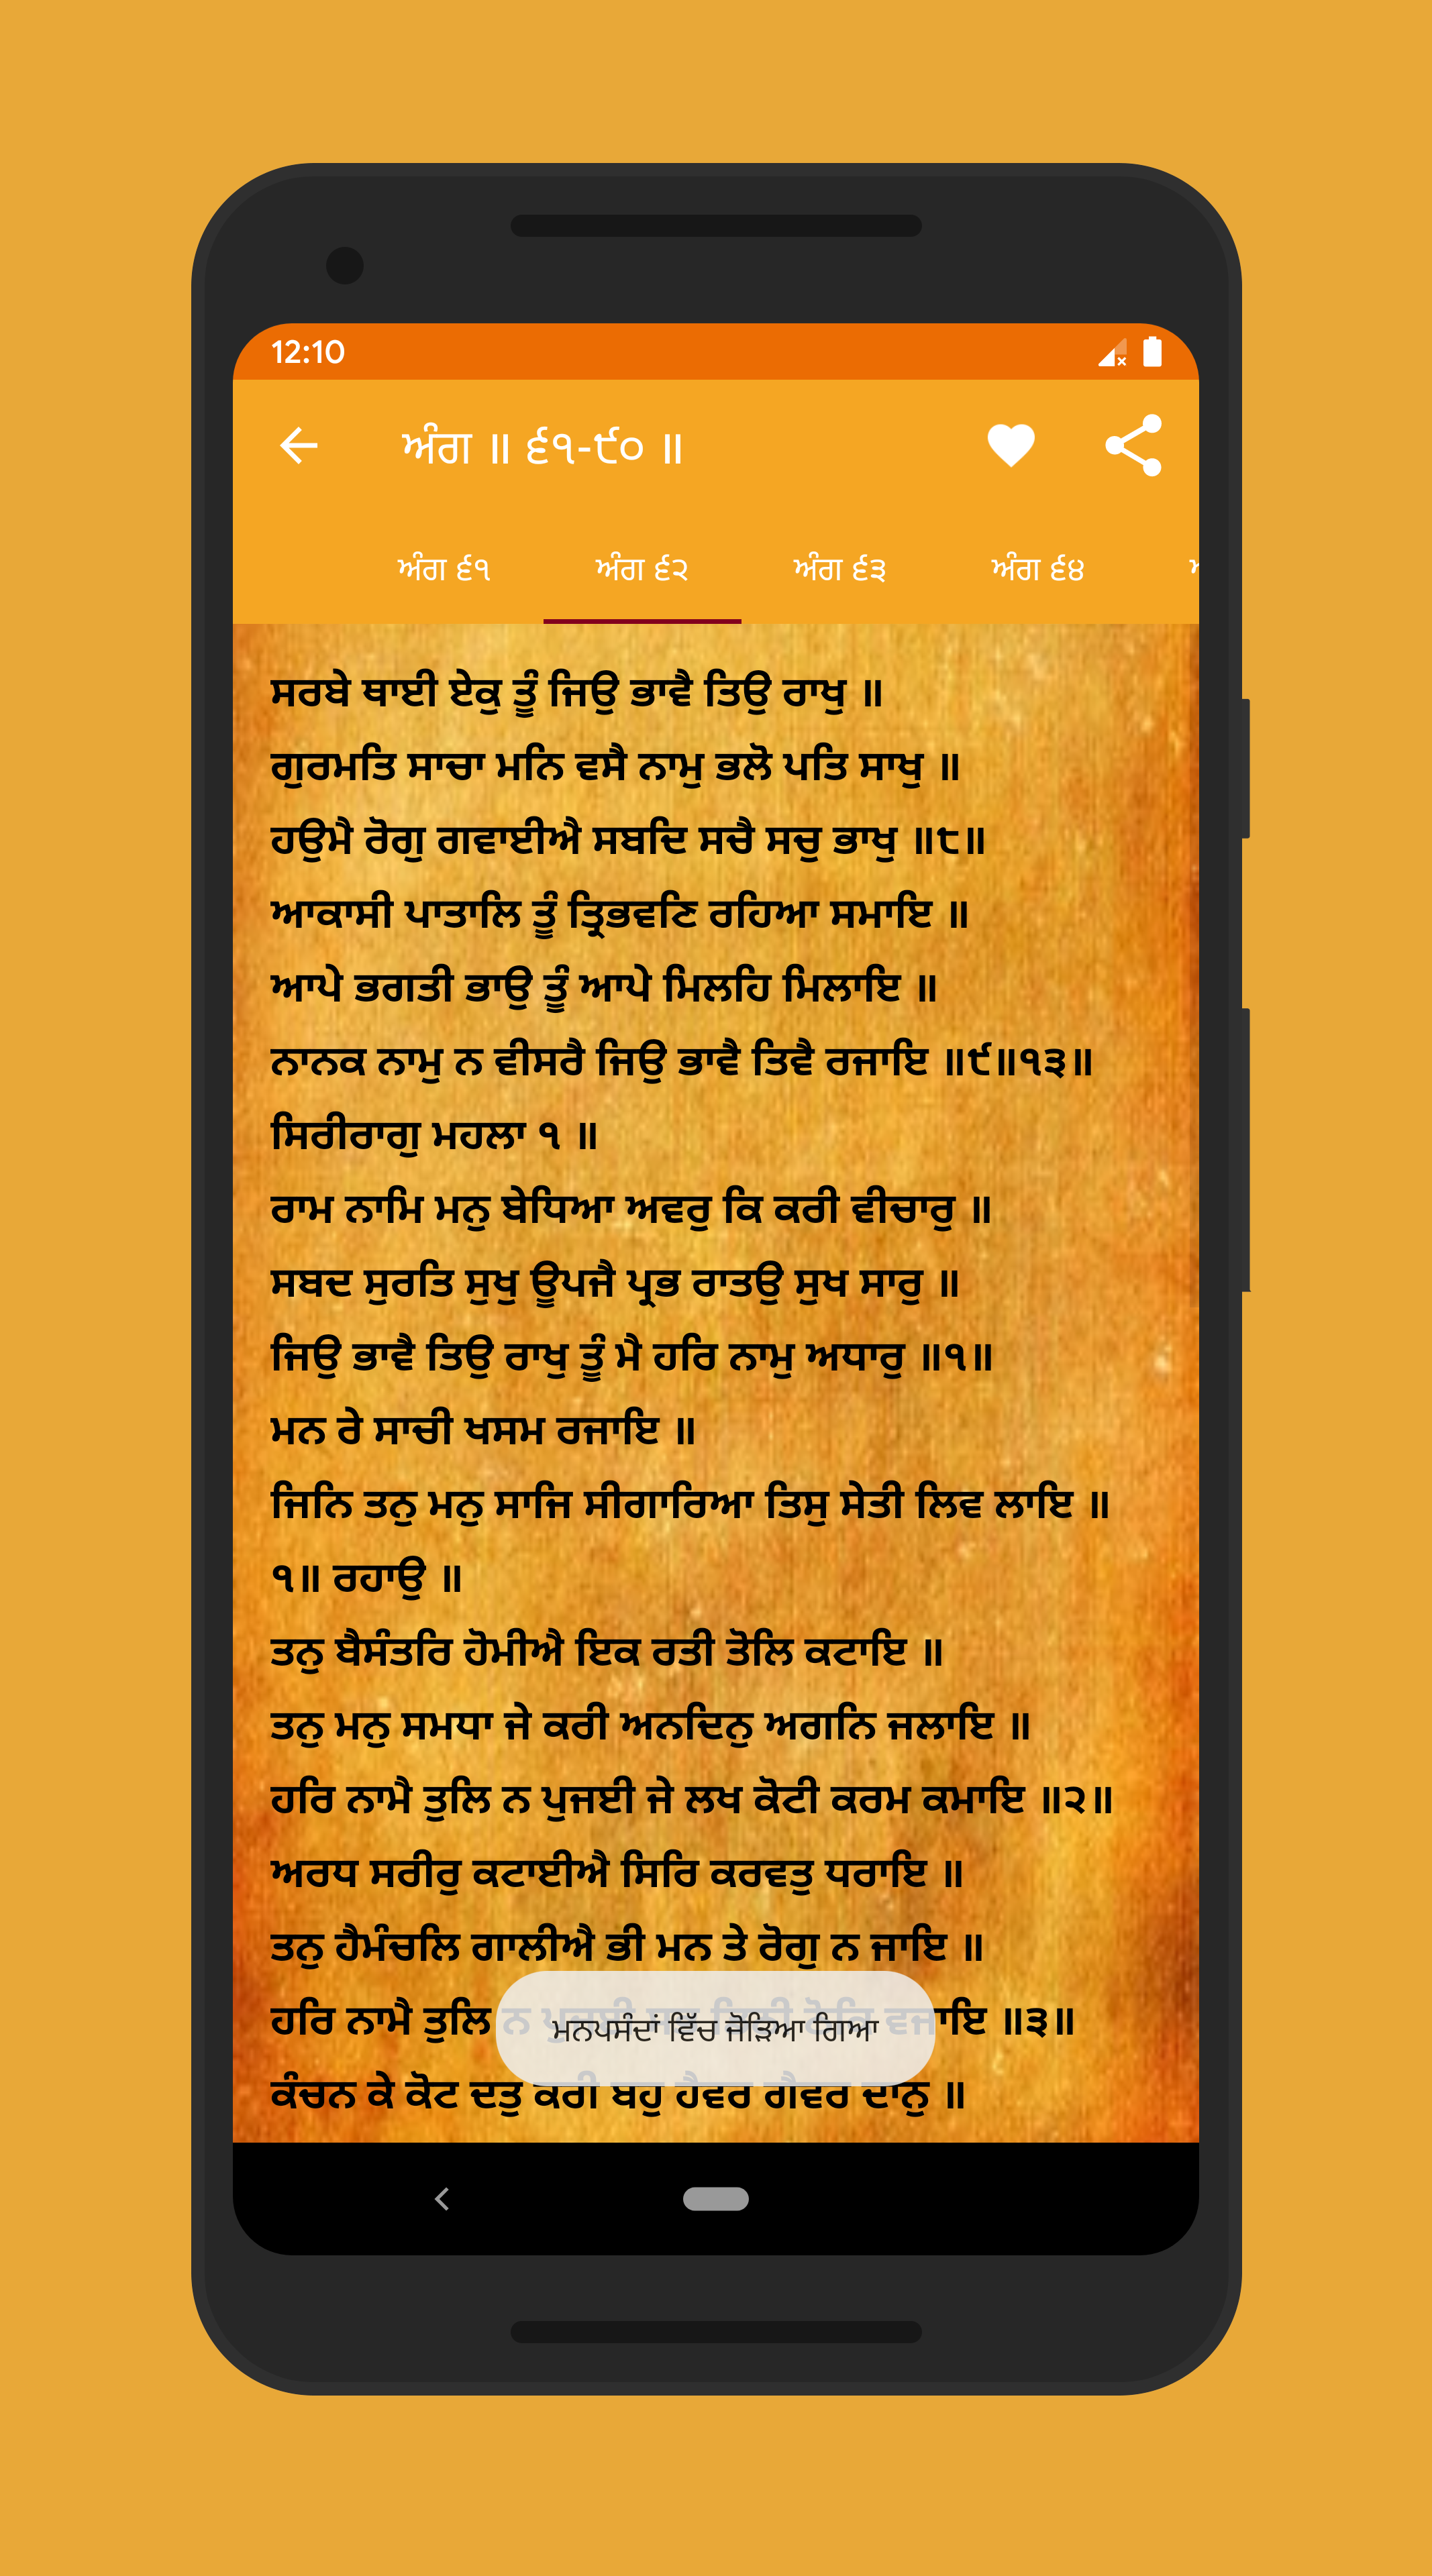 12:10
ਅੰਗ ॥ ੬੧-੯੦ ॥
ਅੰਗ ੬੧ ਅੰਗ ੬੨ ਅੰਗ ੬੩ ਅੰਗ ੬੪
ਸਰਬੇ ਥਾਈ ਏਕੁ ਤੂੰ ਜਿਉ ਭਾਵੈ ਤਿਉ ਰਾਖੁ ॥
ਗੁਰਮਤਿ ਸਾਚਾ ਮਨਿ ਵਸੈ ਨਾਮੁ ਭਲੋ ਪਤਿ ਸਾਖੁ ॥
ਹਉਮੈ ਰੋਗੁ ਗਵਾਈਐ ਸਬਦਿ ਸਚੈ ਸਚੁ ਭਾਖੁ ॥੮॥
ਆਕਾਸੀ ਪਾਤਾਲਿ ਤੂੰ ਤ੍ਰਿਭਵਣਿ ਰਹਿਆ ਸਮਾਇ ॥
ਆਪੇ ਭਗਤੀ ਭਾਉ ਤੂੰ ਆਪੇ ਮਿਲਹਿ ਮਿਲਾਇ ॥
ਨਾਨਕ ਨਾਮੁ ਨ ਵੀਸਰੈ ਜਿਉ ਭਾਵੈ ਤਿਵੈ ਰਜਾਇ ॥੯॥੧੩॥
ਸਿਰੀਰਾਗੁ ਮਹਲਾ ੧ ॥
ਰਾਮ ਨਾਮਿ ਮਨੁ ਬੇਧਿਆ ਅਵਰੁ ਕਿ ਕਰੀ ਵੀਚਾਰੁ ॥
ਸਬਦ ਸੁਰਤਿ ਸੁਖੁ ਊਪਜੈ ਪ੍ਰਭ ਰਾਤਉ ਸੁਖ ਸਾਰੁ ॥
ਜਿਉ ਭਾਵੈ ਤਿਉ ਰਾਖੁ ਤੂੰ ਮੈ ਹਰਿ ਨਾਮੁ ਅਧਾਰੁ ॥੧॥
ਮਨ ਰੇ ਸਾਚੀ ਖਸਮ ਰਜਾਇ ॥
ਜਿਨਿ ਤਨੁ ਮਨੁ ਸਾਜਿ ਸੀਗਾਰਿਆ ਤਿਸੁ ਸੇਤੀ ਲਿਵ ਲਾਇ ॥
੧॥ ਰਹਾਉ ॥
ਤਨੁ ਬੈਸੰਤਰਿ ਹੋਮੀਐ ਇਕ ਰਤੀ ਤੋਲਿ ਕਟਾਇ ॥
ਤਨੁ ਮਨੁ ਸਮਧਾ ਜੇ ਕਰੀ ਅਨਦਿਨੁ ਅਗਨਿ ਜਲਾਇ ॥
ਹਰਿ ਨਾਮੈ ਤੁਲਿ ਨ ਪੁਜਈ ਜੇ ਲਖ ਕੋਟੀ ਕਰਮ ਕਮਾਇ ॥੨॥
ਅਰਧ ਸਰੀਰੁ ਕਟਾਈਐ ਸਿਰਿ ਕਰਵਤੁ ਧਰਾਇ ॥
ਤਨੁ ਹੈਮੰਚਲਿ ਗਾਲੀਐ ਭੀ ਮਨ ਤੇ ਰੋਗੁ ਨ ਜਾਇ ॥
ਹਰਿ ਨਾਮੈ ਤੁਲਿ ਨ ਵਜਾਇ ॥੩॥
ਮਨਪਸੰਦਾਂ ਵਿੱਚ ਜੋੜਿਆ ਗਿਆ
ਕੰਚਨ ਕੇ ਕੋਟ ਦਤੁ ਕਰੀ ਬਹੁ ਹੈਵਰ ਗੈਵਰ ਦਾਨੁ ॥